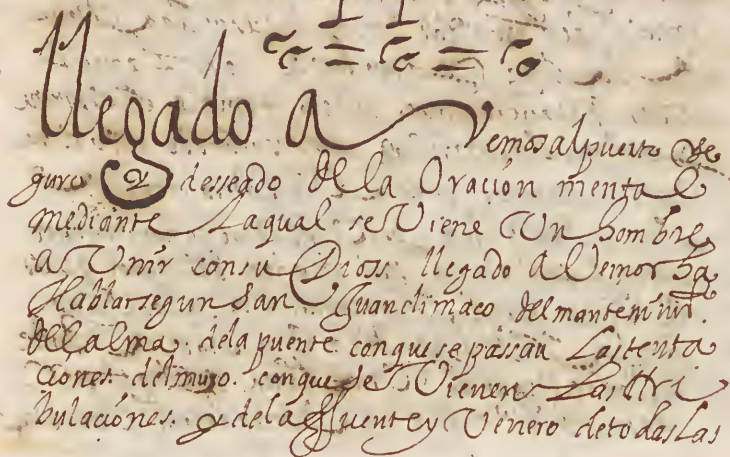 llegado a
vemos al puerto se
guro y desseado de la Oración mental
mediante la qual se Viene Un hombre
a Unir con su Dios. llegado a Vemos ha
Hablar segun San Juan climaco del mantenimi.to
del alma. dela puente conque se passan Las tenta
ciones. del mũdo. conque se Vienen Las tri
bulaciónes. y dela ffuente y Venero de todas las